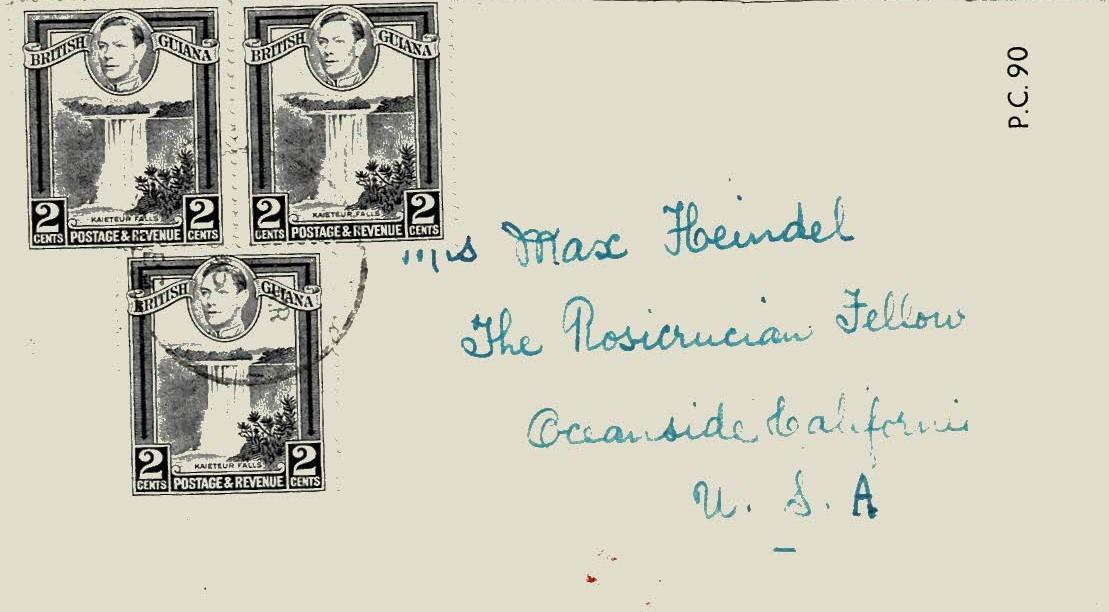 BRITISH GUIANA
KAIETEUR FALLS
2 CENTS POSTAGE & REVENUE 2 CENTS
BRITISH GUIANA
KAIETEUR FALLS
2 CENTS POSTAGE & REVENUE 2 CENTS
BRITISH GUIANA
KAIETEUR FALLS
2 CENTS POSTAGE & REVENUE 2 CENTS
P.C. 90
Mrs Max Heindel
The Rosicrucian Fellow
Oceanside California
U. S. A